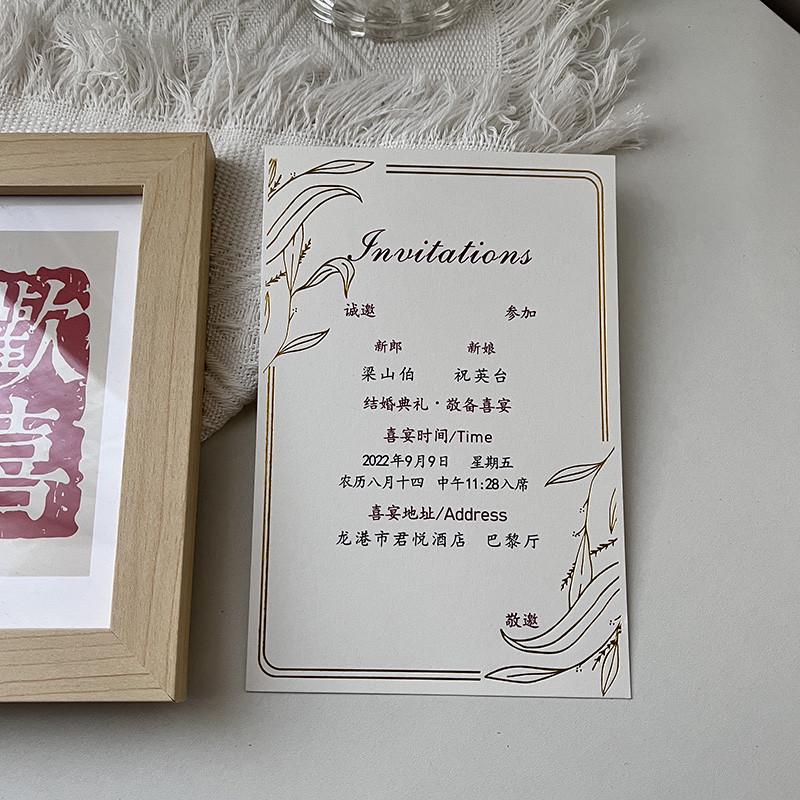 歡
喜
Invitations
诚邀 参加
新郎 新娘
梁山伯 祝英台
结婚典礼·敬备喜宴
喜宴时间/Time
2022年9月9日 星期五
农历八月十四 中午11:28入席
喜宴地址/Address
龙港市君悦酒店 巴黎厅
敬邀